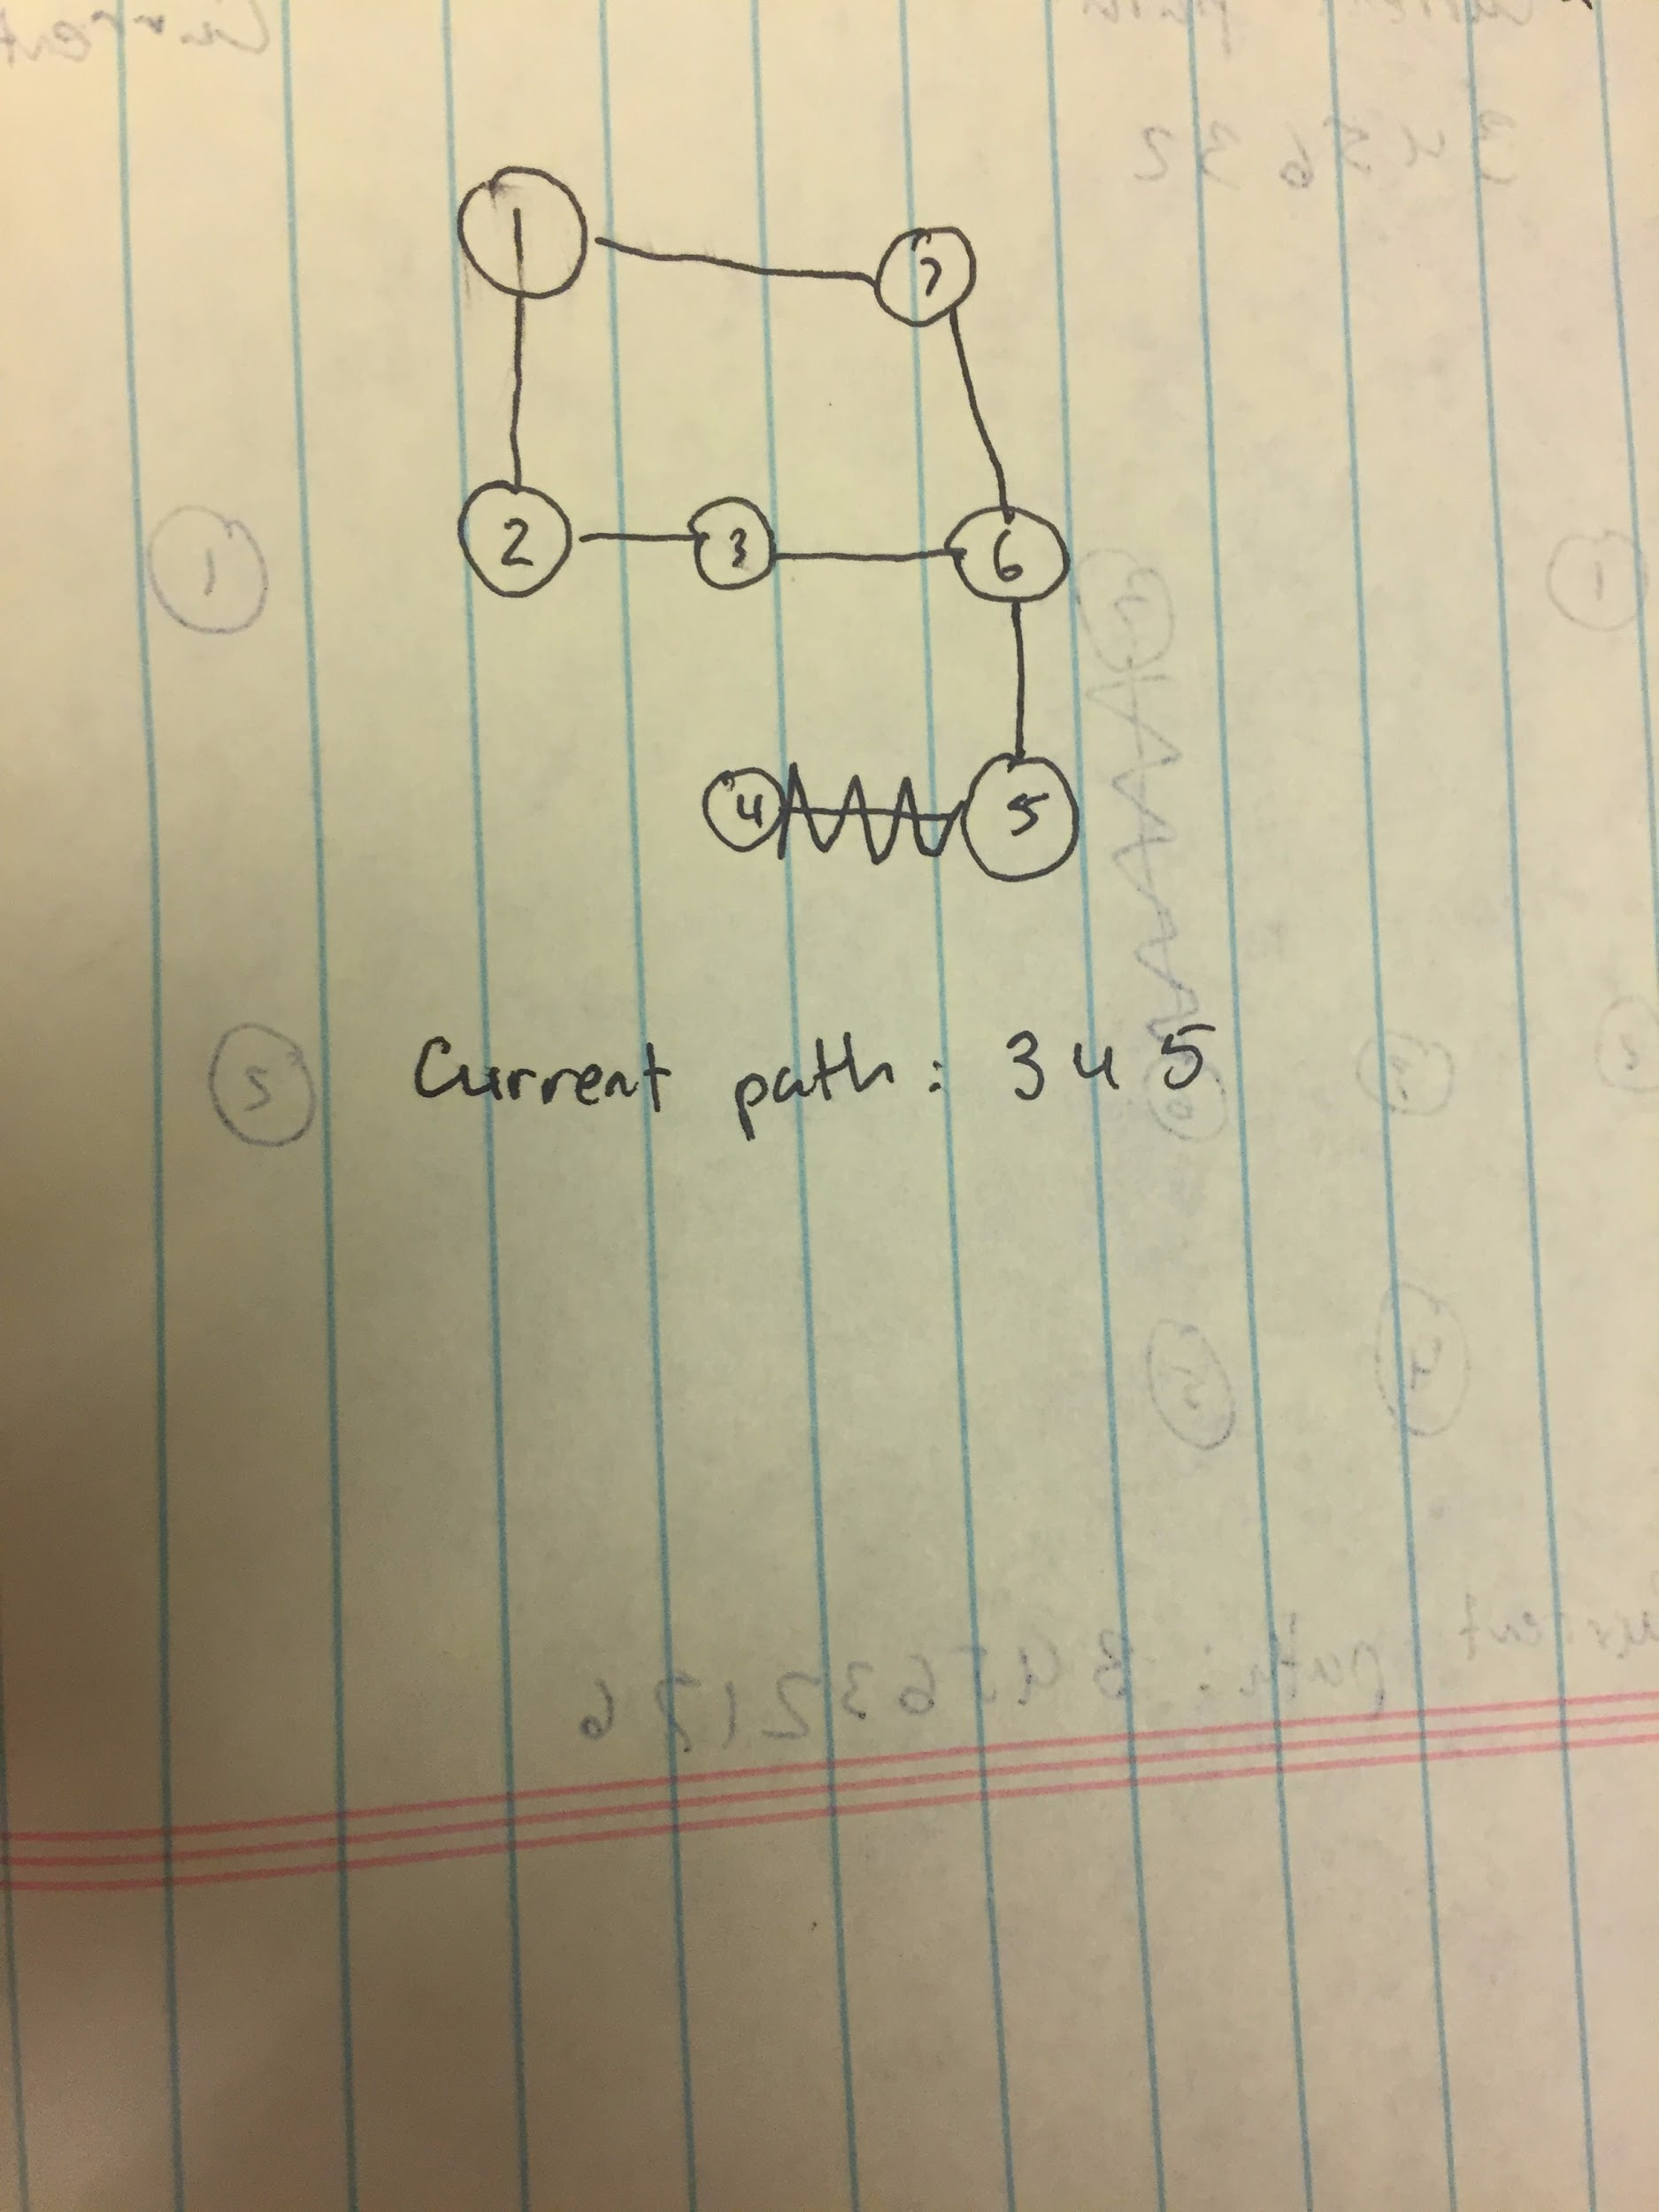 1
7
2 3 6
4 5
Current path: 3 4 5